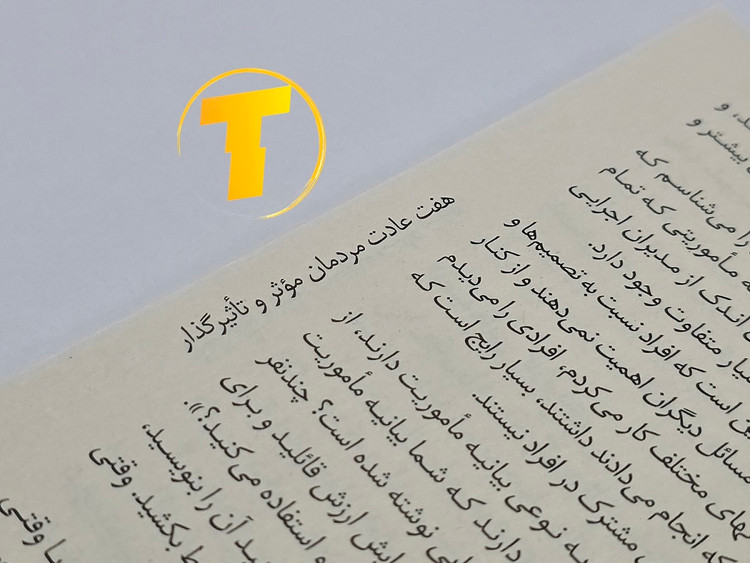 T
هفت عادت مردمان مؤثر و تأثیرگذار
د، و
بیشتر و
را می‌شناسم که
مأموریتی که تمام
اندک از مدیران اجرایی
متفاوت وجود دارد.
است که افراد نسبت به تصمیم‌ها و
مسائل دیگران اهمیت نمی‌دهند و از کنار
مختلف کار می‌کردم، افرادی را می‌دیدم
که انجام می‌دادند داشتند، بسیار رایج است که
مشترک در افراد نیستند.
به نوعی بیانیه مأموریت دارند، از
دارند که شما بیانیه مأموریت
نوشته شده است؟ چند نفر
ارزش قائلید و برای
استفاده می‌کنید؟)).
آن را بنویسید،
بکشید. وقتی
یا وقتی